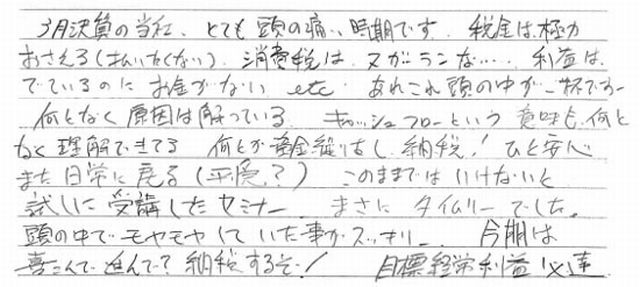 3月決算の当社、とても頭の痛い時期です。税金は極力
おさえる(払いたくない)。消費税は、ヌガランな……利益は
でているのにお金がない etc あれこれ頭の中が一杯です。
何となく原因は解っている キャッシュフローという意味も何と
なく理解できてる 何とか資金繰りはし、納税!ひと安心
また日常に戻る(平穏?) このままではいけないと
試しに受講したセミナー まさにタイムリーでした。
頭の中でモヤモヤしていた事がスッキリ_ 今期は
喜こんで進んで?納税するぞ! 目標経常利益必達